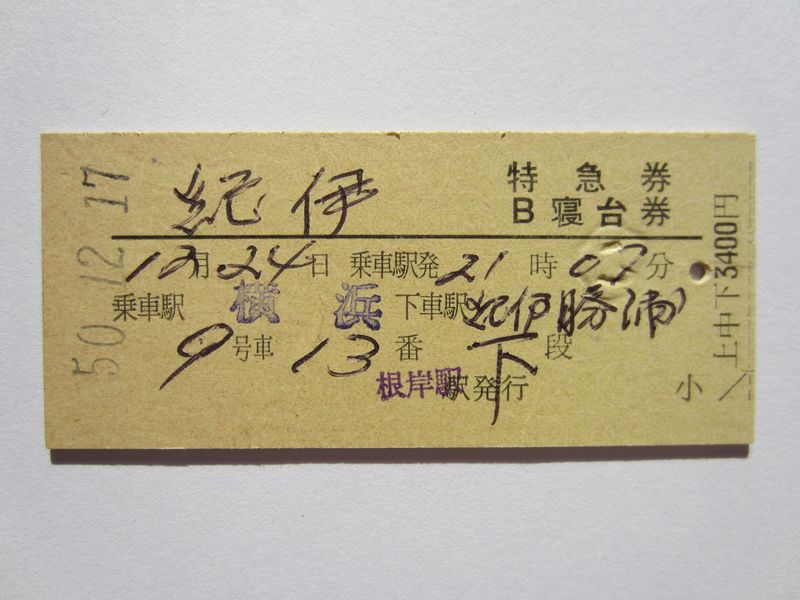 50.12.17
紀伊 特急券
B寝台券
12月24日 乗車駅発 21時07分
乗車駅 横浜 下車駅 紀伊勝浦
9号車 13番 下段
根岸駅 駅発行 小
上中下3400円